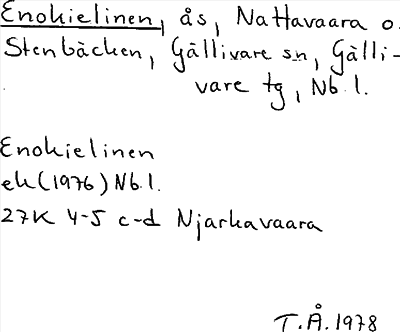 Enokielinen, ås, Nattavaara o.
Stenbäcken, Gällivare sn, Gälli-
vare tg, Nb.l.
Enokielinen
ek (1976) Nb.l.
27K 4-5 c-d Njarkavaara
T.Å. 1978